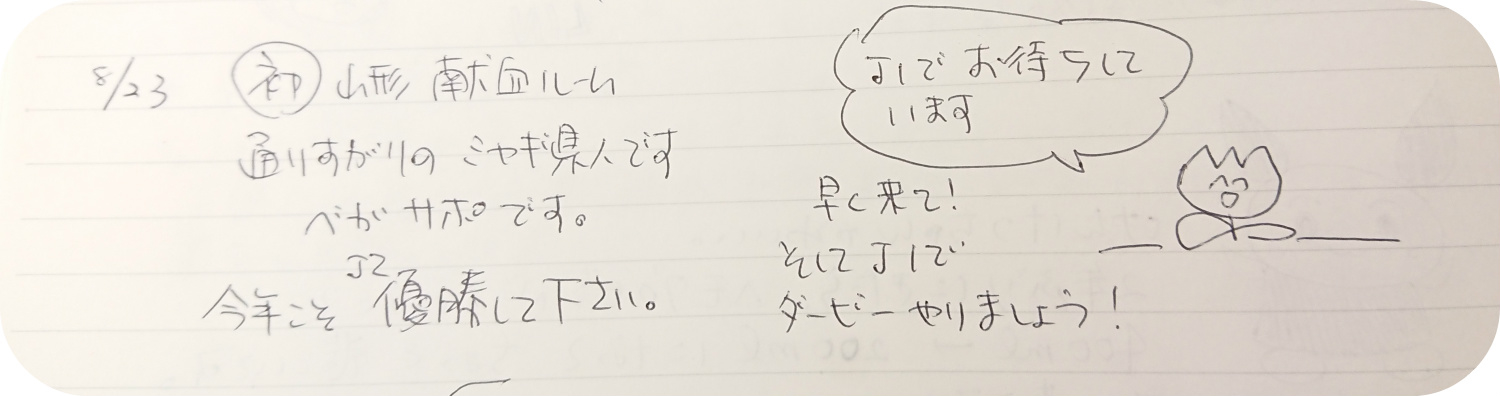 8/23 初 山形 献血ルーム
通りすがりの ミヤギ県人です
べがサポです。
今年こそ J2 優勝して下さい。
J1でお待ちして
います
早く来て!
そしてJ1で
ダービーやりましょう!